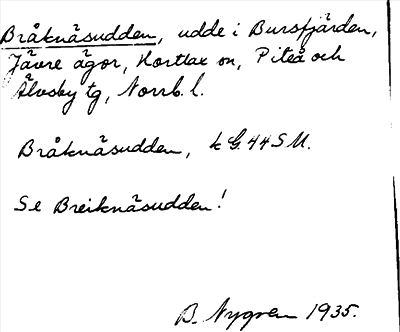 Bråknäsudden, udde i Bursfjärden,
Jävre ägor, Hortlax sn, Piteå och
Älvsby tg, Norrb. l.
Bråknäsudden, k G. 44 S M.
Se Breiknäsudden!
B. Nygren 1935.